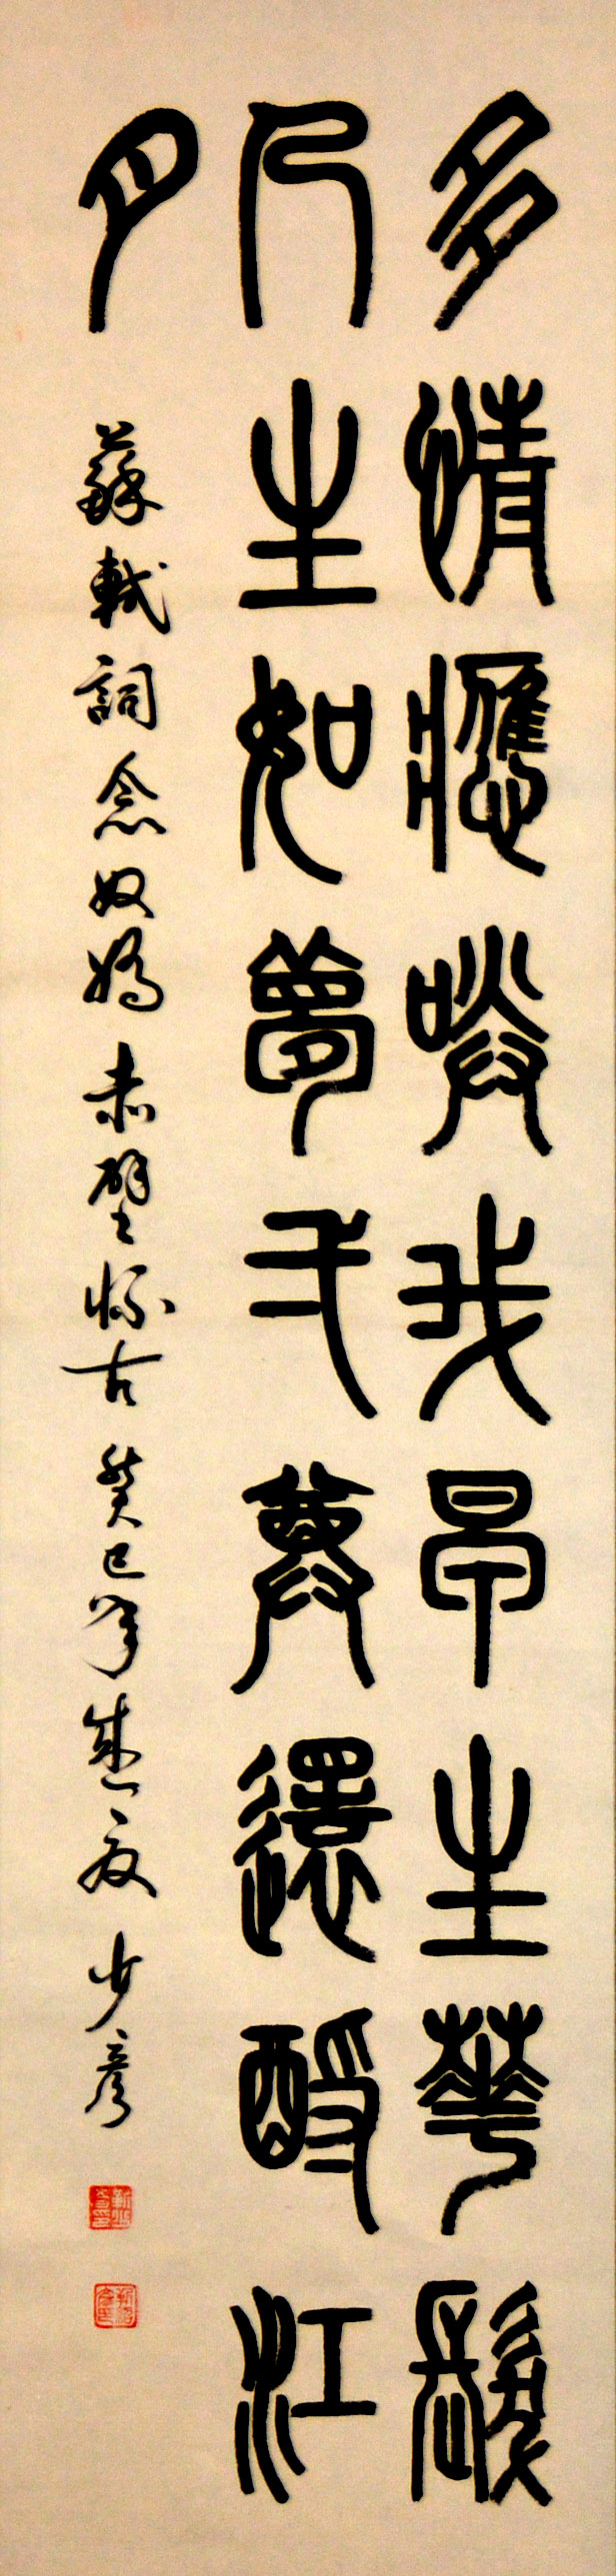 多情應咲我早生華髮
人生如夢弌尊還酹江
月
蘇軾詞念奴嬌赤壁懷古 癸巳年盛夏 少彥